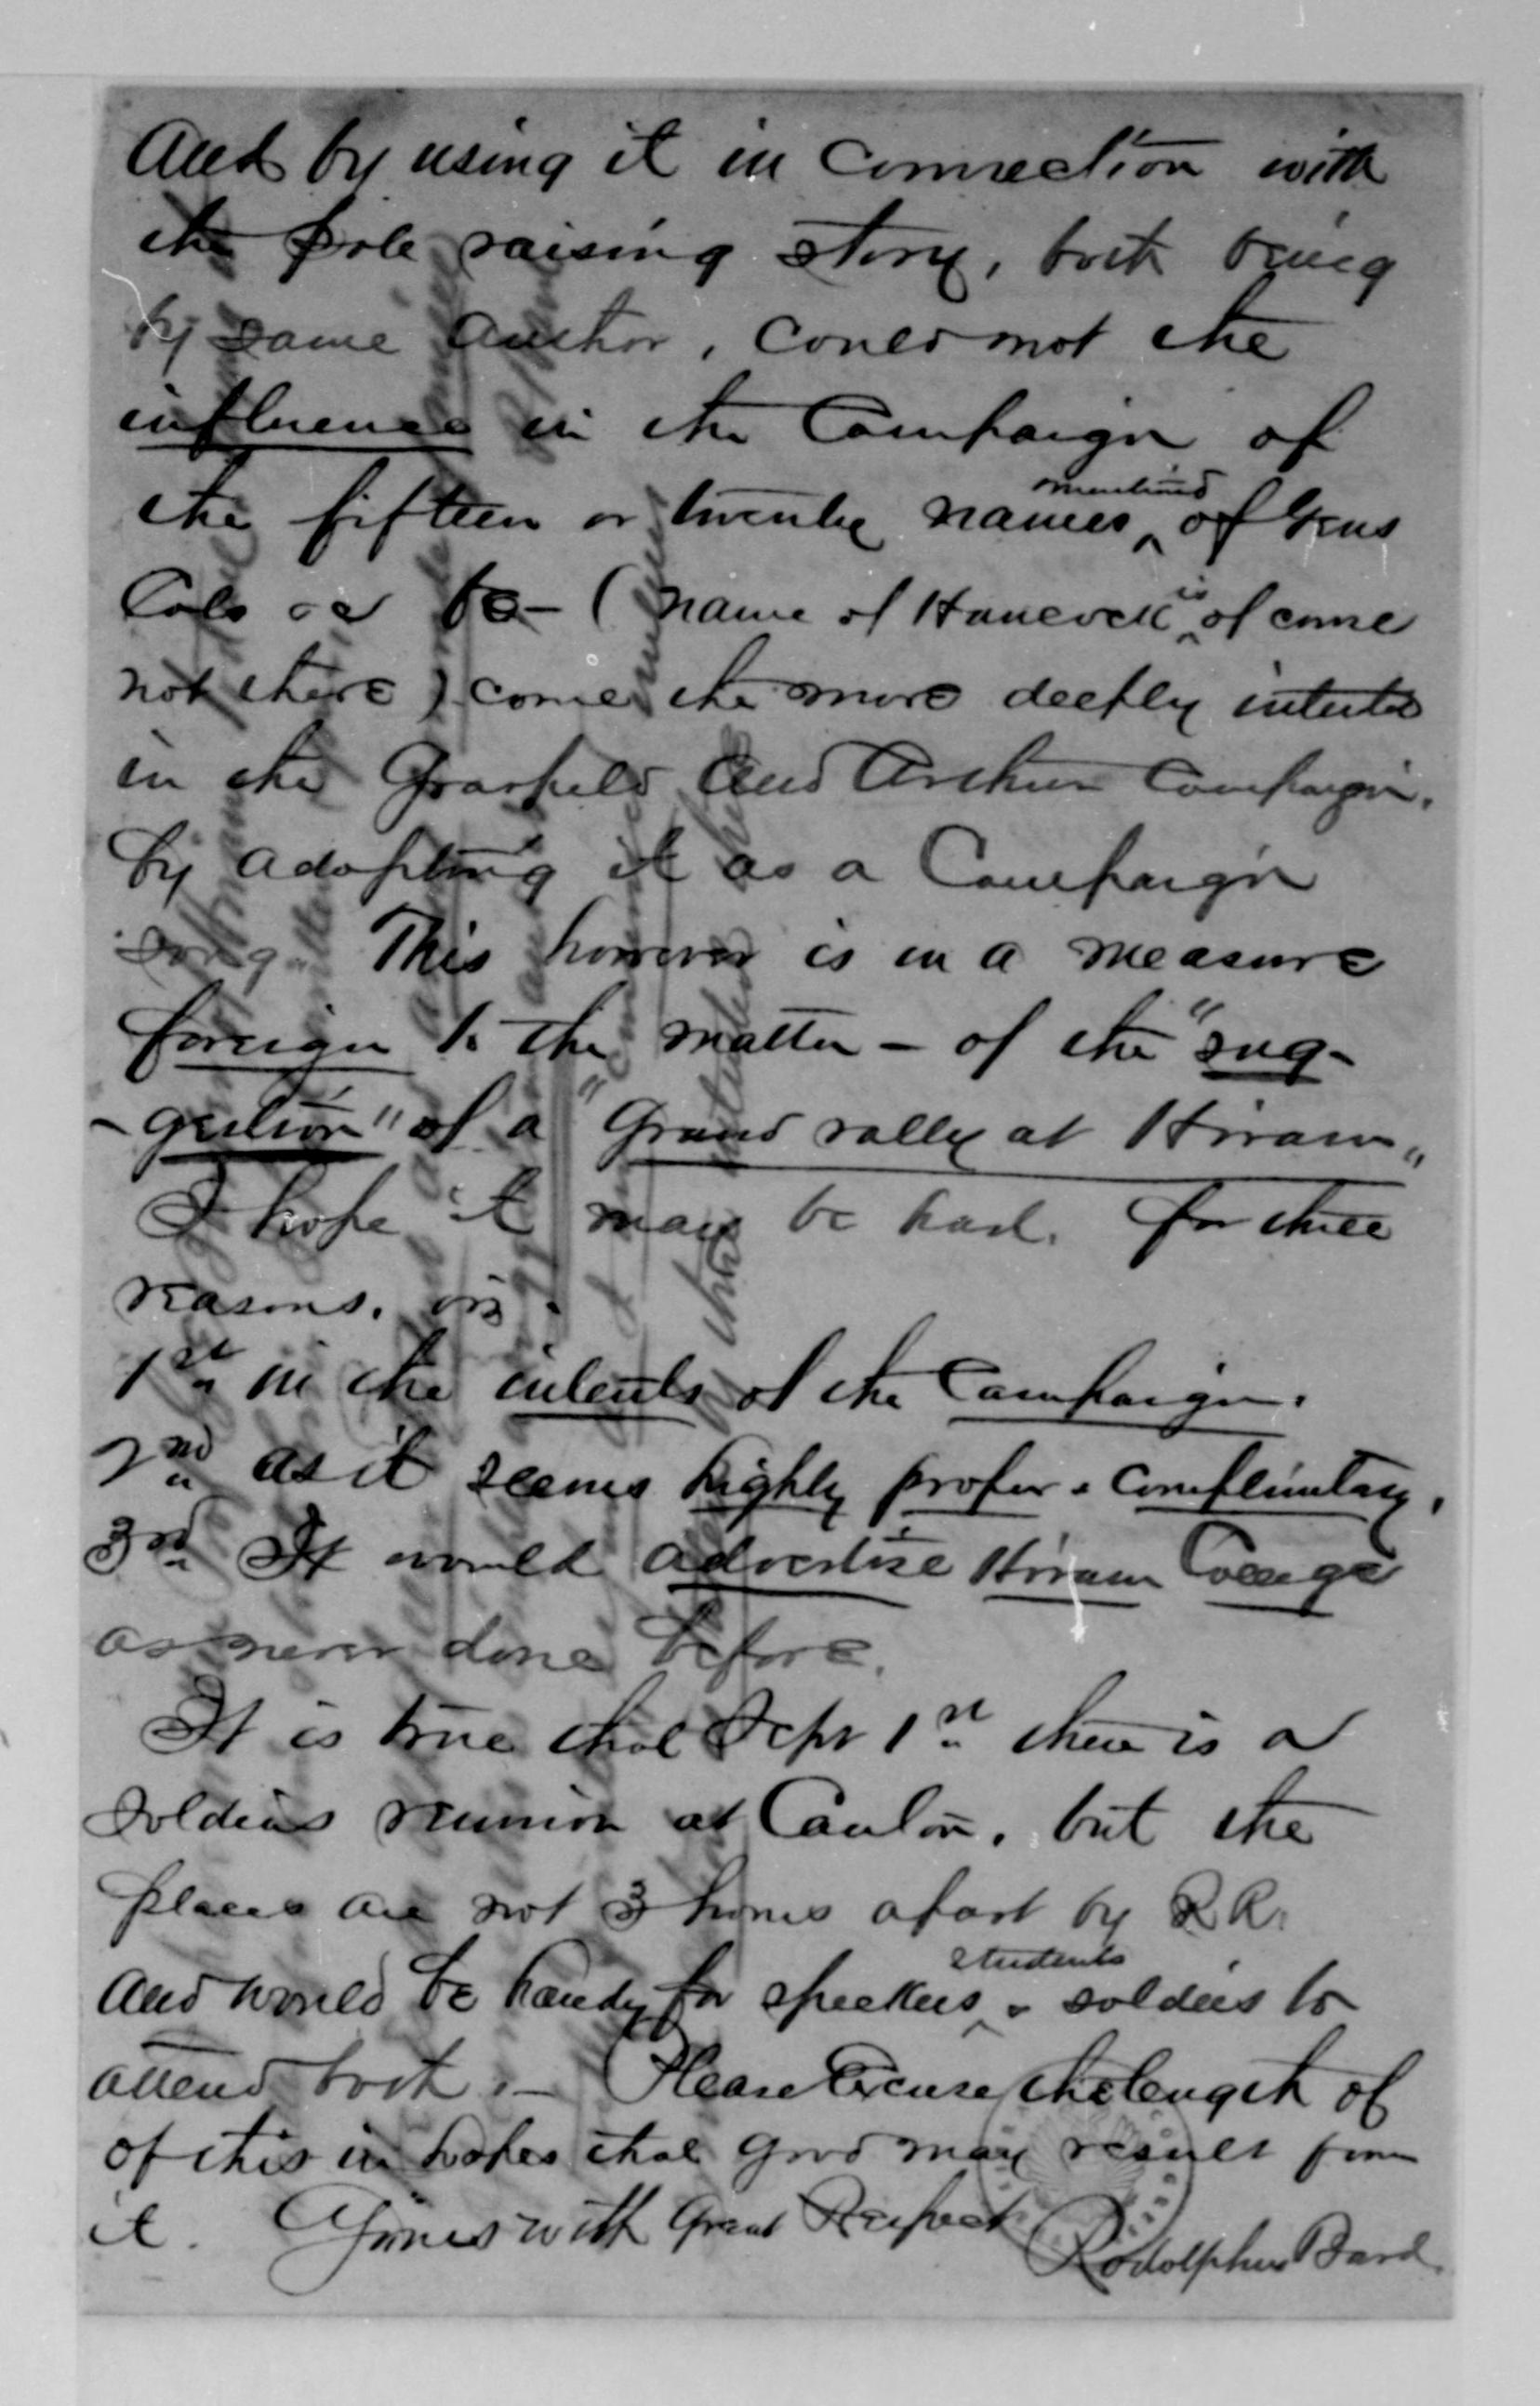 And by using it in connection with
the pole raising story, both being
by same author, could not the
influence in the Campaign of
the fifteen or twenty names mentioned of Gens
Cols &c &c - (name of Hancock is of course
not there) come the more deeply
in the Garfield and Arthur Campaign,
by adopting it as a Campaign
song. This however is in a measure
foreign to the matter - of the "sug-
-gestion" of a "Grand rally at Hiram"
I hope it may be had. for three
reasons. viz.
1st in the of the Campaign.
2nd as it seems highly proper & complimentary,
3rd It would advertise Hiram College
as never done before.
It is true that Sept 1st there is a
soldiers reunion at Canton, but the
places are not 3 hours apart by R R.
and would be handy for speekers students & soldiers to
attend both. - Please Excuse the length of
of this in hopes that good may result from
it. Yours with Great Respect Rodolphus Bard